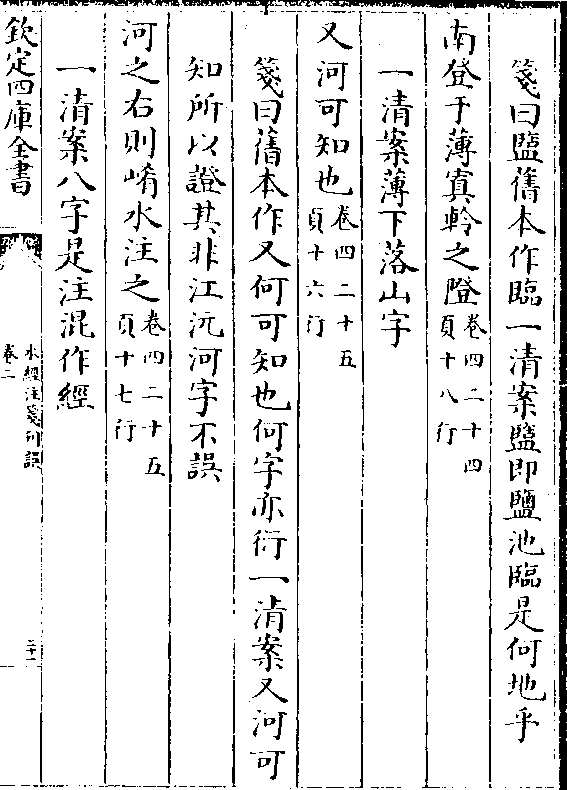 箋曰盬舊本作臨一清案盬即鹽池臨是何地乎
南登于薄寘軨之隥卷四二十四頁十八行
一清案薄下落山字
又河可知也卷四二十五頁十六行
箋曰舊本作又何可知也何字亦衍一清案又河可
知所以證其非江沅河字不誤
河之右則崤水注之卷四二十五頁十七行
一清案八字是注混作經
欽定四庫全書
水經注箋刋誤
卷二
二十一